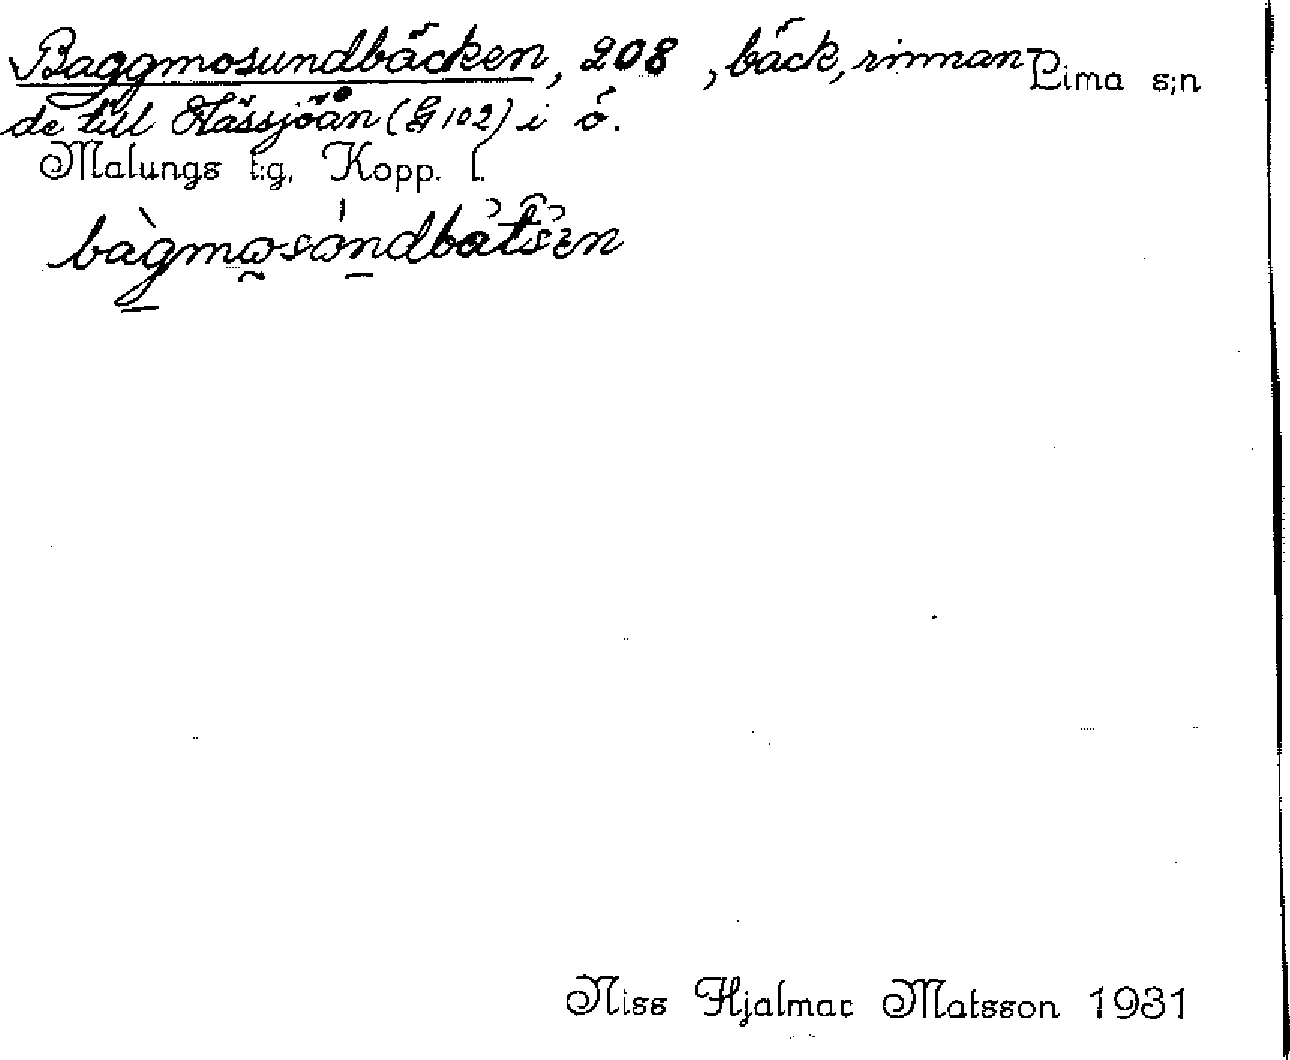 Baggmosundbäcken, 208, bäck, rinnan- Lima s;n
de till Hässjöån (G 102) i ö.
Malungs t:g, Kopp. l.
Niss Hjalmar Matsson 1931